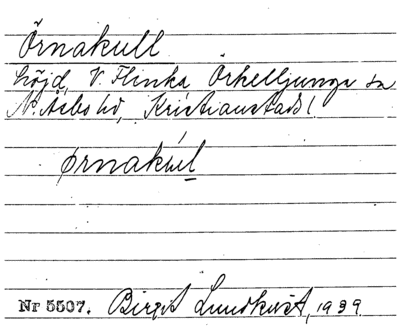 Örnakull
höjd, V. Flinka, Örkelljunga sn
N. Åsbo hd, Kristianstads l
ørnakúl
Nr 5507. Birgit Lundkvist, 1939